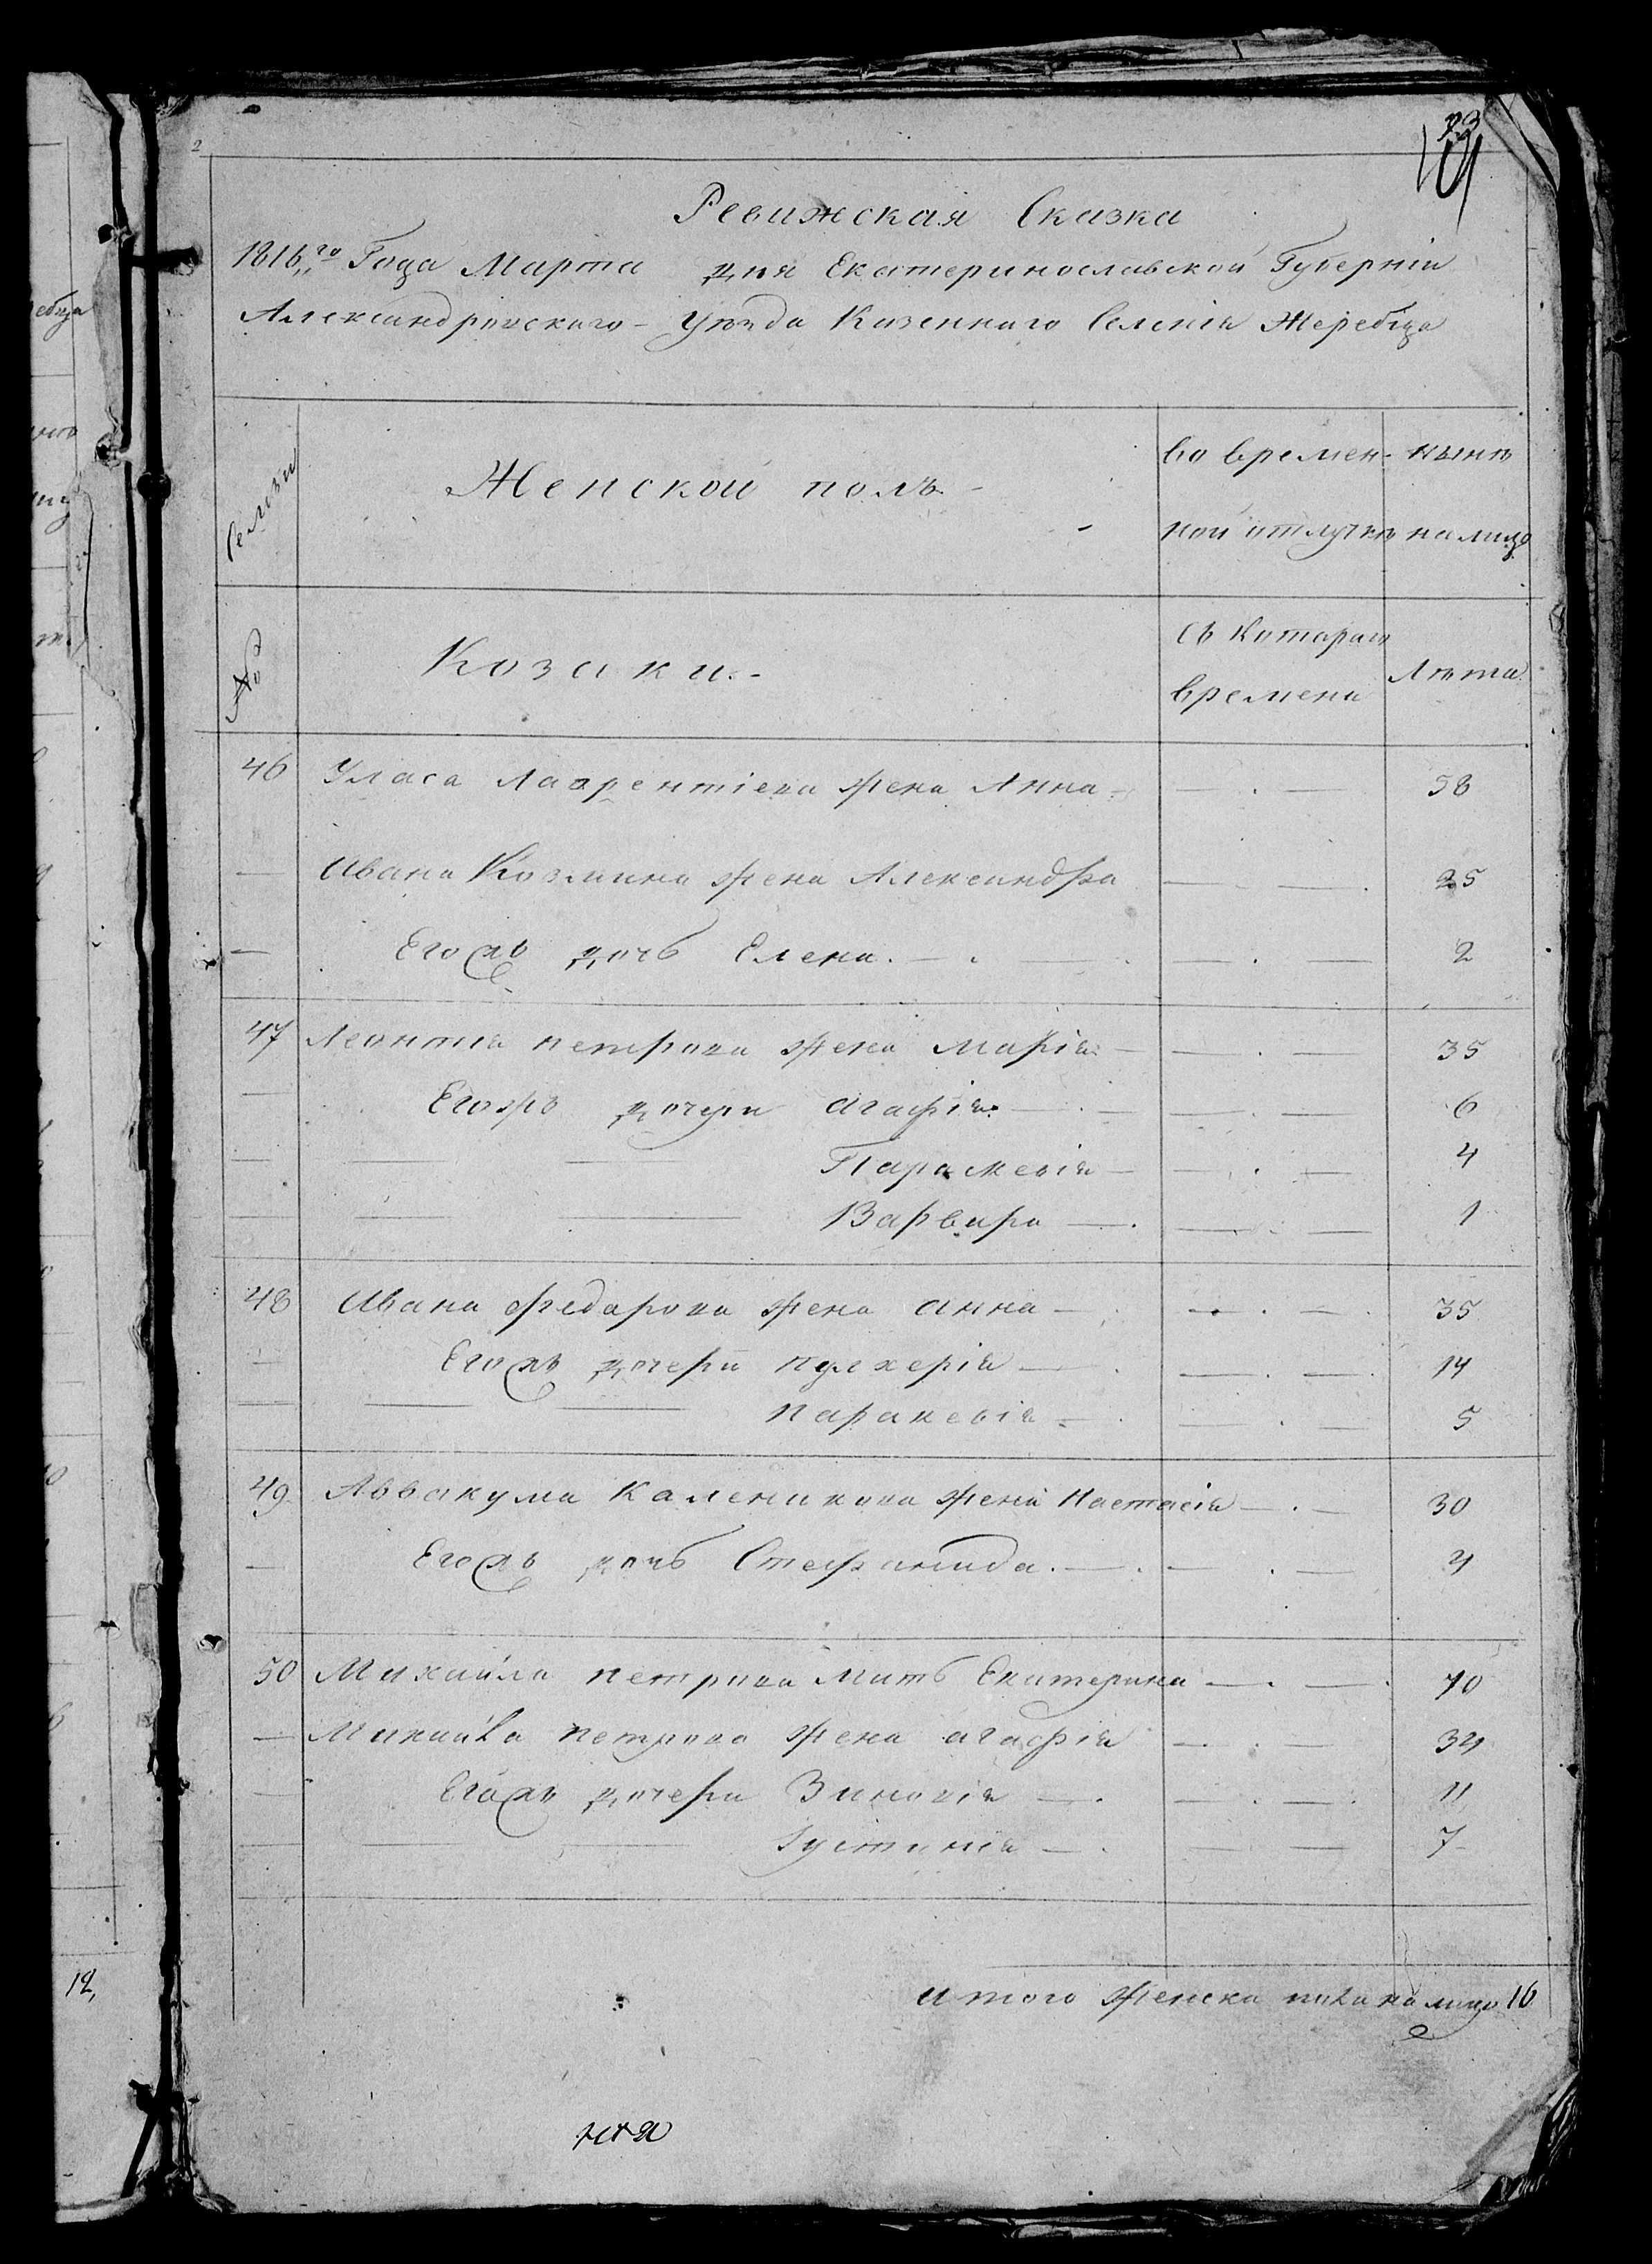 Ревижская Сказка
1816,,го Года Марта дня Екатеринославской Губерніи
Александровскаго Уѣзда Казеннаго Селенія Жеребца
Семьи
Женской полъ
во времен- нынѣ
ной отлучкѣ на лицо
№
Козаки
съ котораго
времени
Лѣта
46 Уласа Лаврентіева жена Анна 58
Ивана Козмина жена Александра 25
Егожъ дочь Елена 2
47 Леонтія петрова жена Марія 35
Егожъ дочери Агафія 6
Параскевія 4
Варвара 1
48 Ивана Федарова жена Анна 35
Егожъ дочери пулхерія 14
параскевія 5
49 Аввакума Каленикова жена Настасія 30
Егожъ дочь Стефанида 4
50 Михайла петрова Мать Екатерина 70
Михайла петрова жена агафія 34
Егожъ дочери Зиновія 11
Іустинія 7
итого женска пола на лицо 16
12,